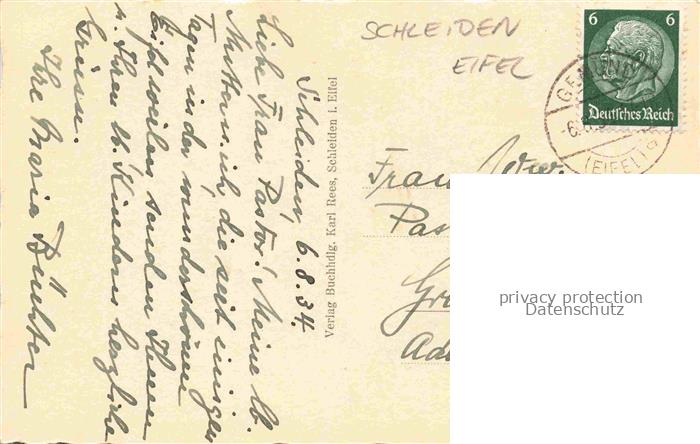 Schleiden, 6.8.34.
Liebe Frau Pastor! Meine lb.
Mutter u. ich, die seit einigen
Tagen in der wunderschönen
Eifel weilen senden Ihnen
u. Ihren lb. Kindern herzliche
Grüsse.
Ihre Maria Büchter
Verlag Buchhdlg. Karl Rees, Schleiden i. Eifel
SCHLEIDEN
EIFEL
6 6
Deutsches Reich
GEMÜND
(EIFEL)
Frau Wwe.
Pas
Gr
Ad
privacy protection
Datenschutz